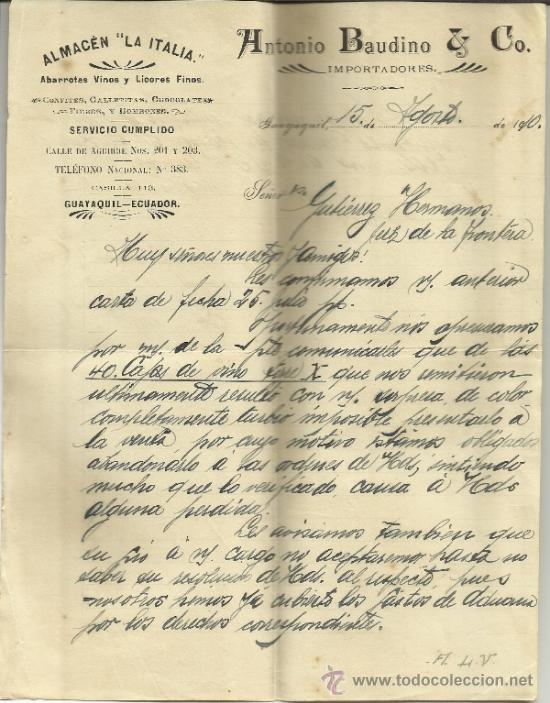 ALMACÉN "LA ITALIA."
Abarrotes Vinos y Licores Finos.
CONFITES, GALLETITAS, CHOCOLATES
FIDEOS, Y BOMBONES.
SERVICIO CUMPLIDO
CALLE DE AGUIRRE NOS. 201 Y 203.
TELÉFONO NACIONAL: Nº 383.
CASILLA 113.
GUAYAQUIL-ECUADOR.
Antonio Baudino & Co.
IMPORTADORES.
Guayaquil, 15 de Agosto de 1910.
Señores Gutiérrez Hermanos.
Jerez de la Frontera
Muy señores nuestros y amigos:
Les confirmamos n/. anterior
carta de fecha 25 julio pp.
Oportunamente nos apresuramos
por m/. de la pte comunicarles que de las
40. Cajas de vino Jerez X que nos remitieron
ultimamente resultó con n/. sorpresa de color
completamente turbio imposible presentarlo á
la venta por cuyo motivo estamos obligados
abandonarlo á las ordenes de Uds, sintiendo
mucho que lo verificado causa á Uds
alguna perdida.
Les avisamos tambien que
su giro á n/ cargo no aceptaremos hasta no
saber su resolución de Uds. al respecto pues
nosotros hemos ya cubierto los gastos de aduana
por los derechos correspondientes.
A. L. V.
todocoleccion
todocoleccion.net